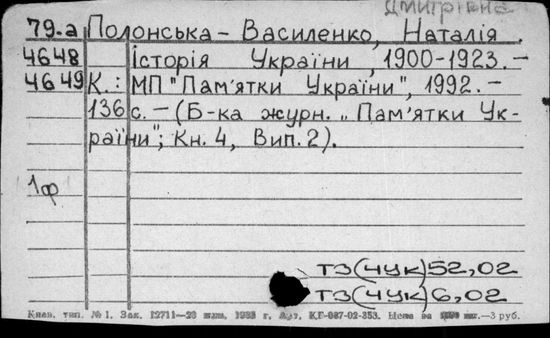 Дмитрівна
79-а Полонська-Василенко, Наталія.
4648 Історія України, 1900-1923.—
4649 К.: МП "Пам'ятки України", 1992.—
136 с.— (Б-ка журн. „Пам'ятки Ук-
раїни"; Кн. 4, Вип. 2).
1ф
ТЗ(4УК)52,02
ТЗ(4УК)6,02
Киев. тип. № 1. Зак. 12711—20 1988 г. Арт. КГ-087-02-353. Цена за —3 руб.